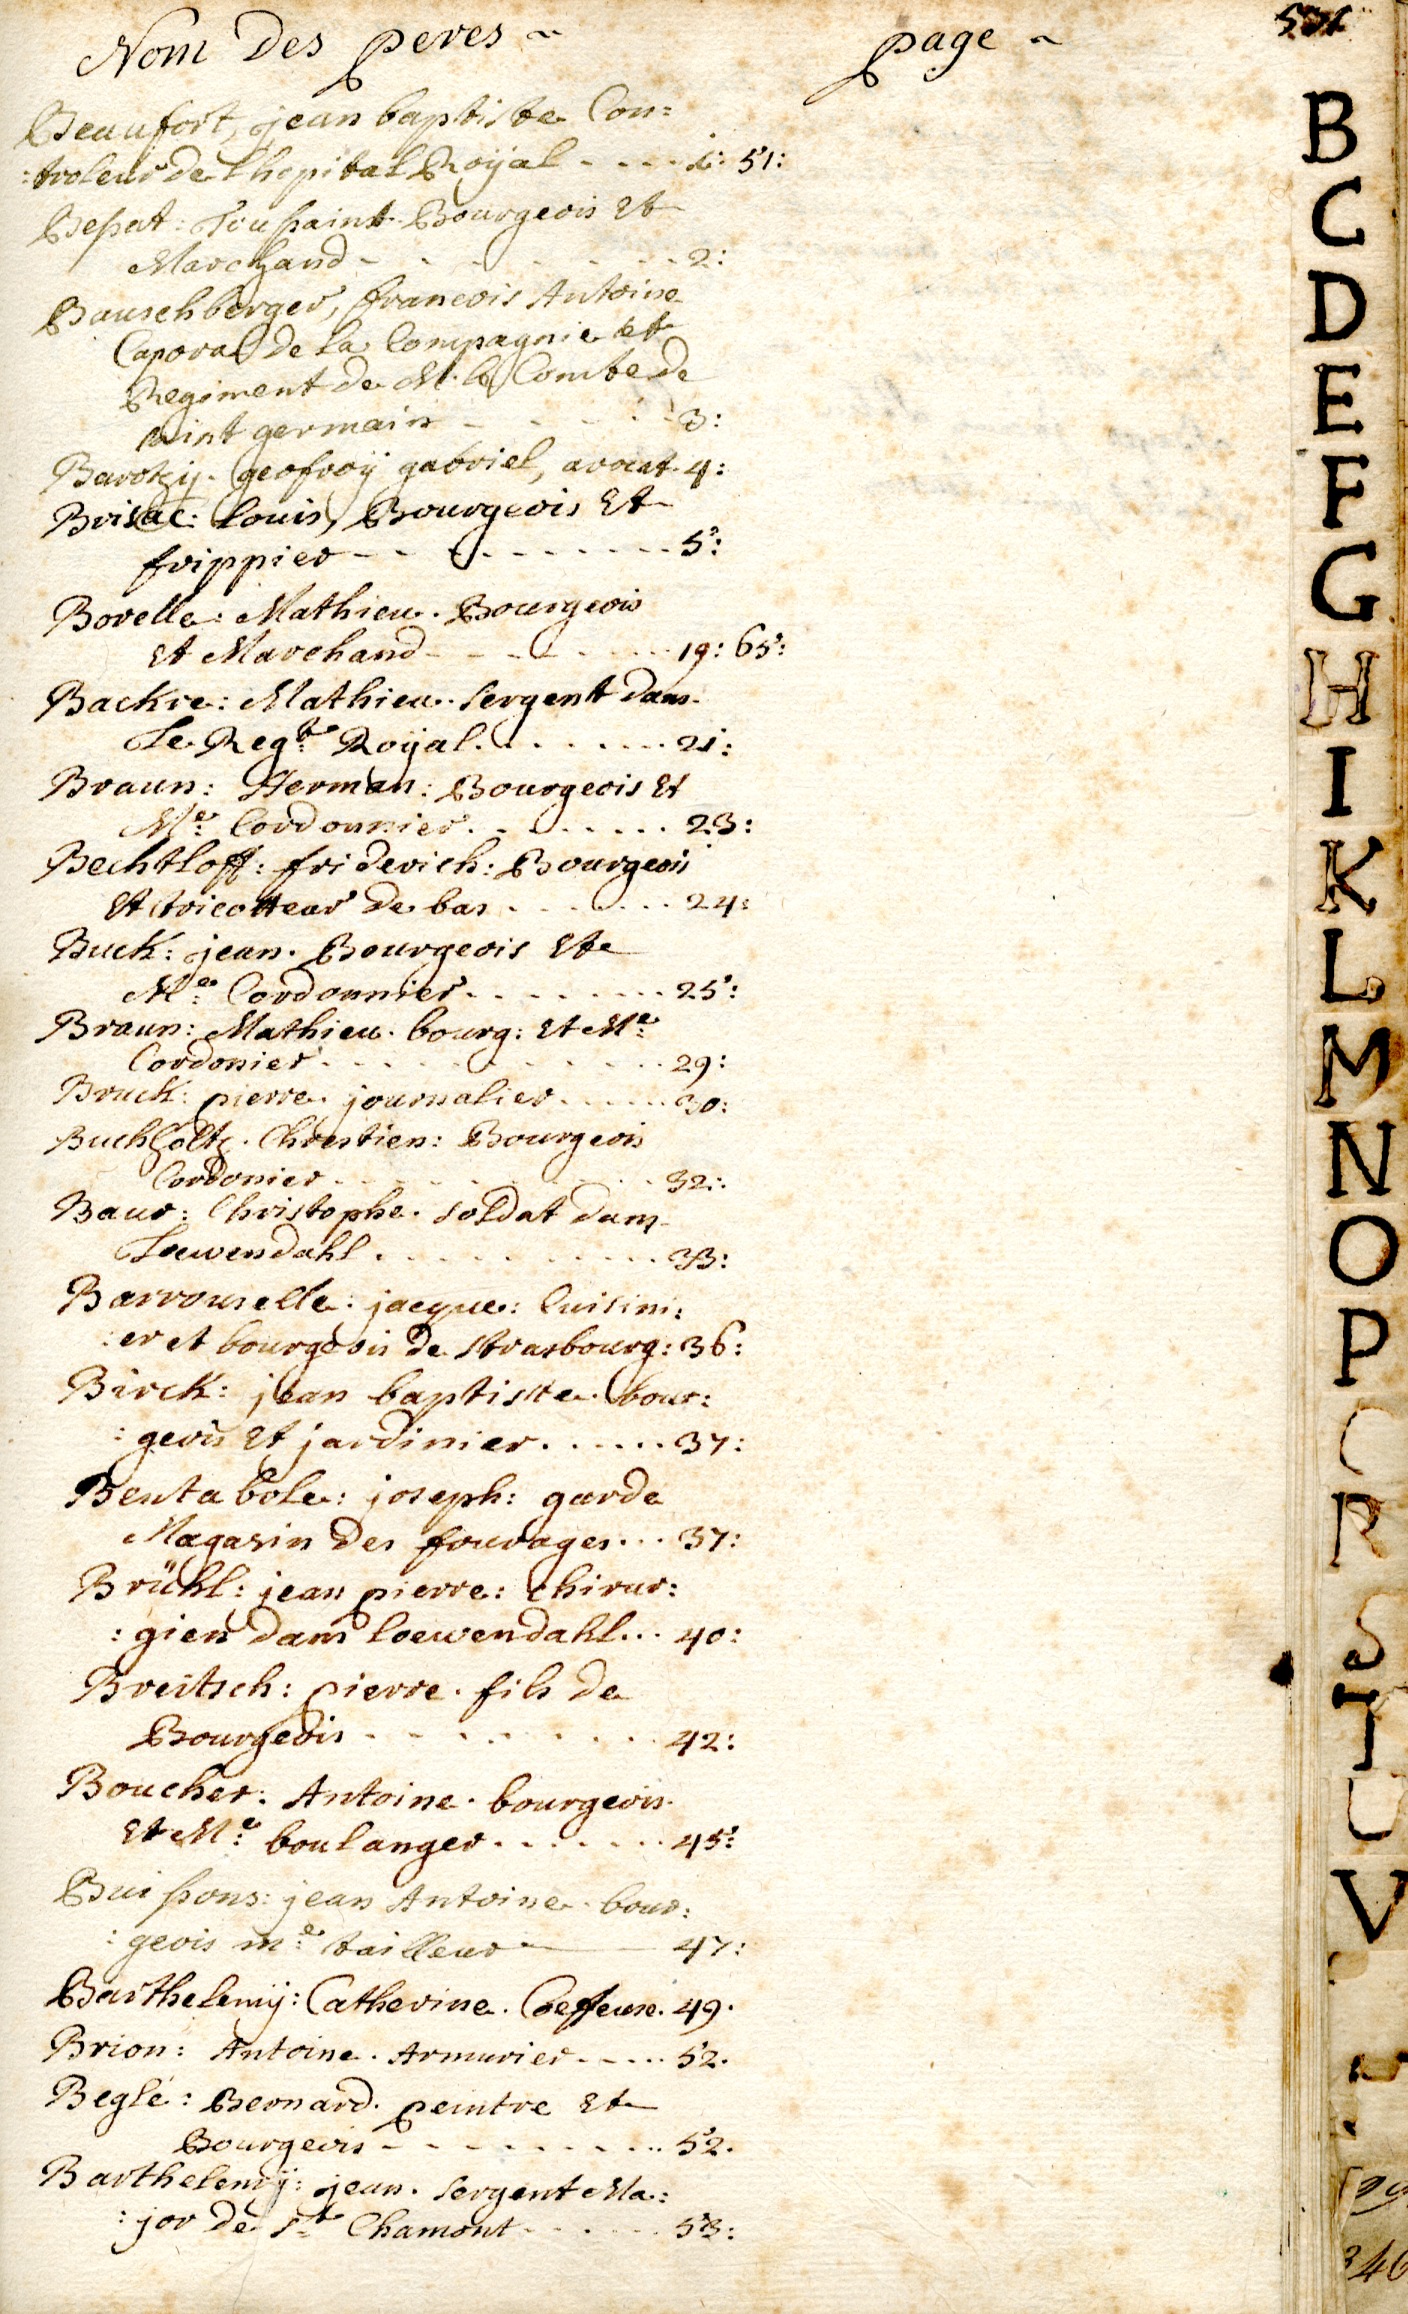 Nom Des peres ~ page ~
Beaufort, jean baptiste Con=
:troleur de L'hopital Roÿal - - - - 1: 51:
Besat: Toussaint Bourgeois Et
Marchand - - - - - - - 2:
Bauschberger, francois Antoine
Caporal de la Compagnie et
Regiment de M. le Comte de
saint germain - - - - - 3:
Barthÿ. geofroÿ gabriel, avocat. 4:
Brisac: Louis, Bourgeois Et
frippier - - - - - - - - - - 5:
Bovelle: Mathieu. Bourgeois
Et Marchand - - - - - - - 19: 65:
Backre: Mathieu. Sergent dans
Le Regt: Roÿal. . . . . . . . 21:
Braun: Herman: Bourgeois Et
Me: Cordonnier. . . . . . . . 23:
Bechtloff: friderich: Bourgeois
Et tricotteur de bas . . . . . . . 24:
Buck: jean. Bourgeois Et
Me: Cordonnier. . . . . . . . 25:
Braun: Mathieu. bourg: Et Me:
Cordonier. . . . . . . . . . . 29:
Bruck: pierre. journalier. . . . . . 30:
Buchholtz. Chrestien: Bourgeois
Cordonier . . . . . . . . . . 32:
Baur: Christophe. Soldat dans
Loewendahl . . . . . . . . . . 33:
Barrouselle: jacque: Cuisini:
:er et bourgeois de strasbourg: 36:
Birck: jean baptiste. bour:
:geois Et jardinier. . . . . . 37:
Bentabole: joseph: garde
Magasin des fourages. . . 37:
Brühl: jean pierre: chirur:
:gien dans loewendahl. . . 40:
Breitsch: pierre. fils de
Bourgeois - - - - - - - - - 42:
Boucher: Antoine. bourgeois.
Et Me: boulanger. . . . . . . 45:
Buissons: jean Antoine. bour:
:geois me: tailleur — 47:
Barthelemÿ: Catherine. Coeffeuse. 49.
Brion: Antoine. Armurier. - - - - 52.
Beglé: Bernard. peintre Et
Bourgeois - - - - - - - - - 52.
Barthelemÿ: jean. Sergent Ma:
:jor de St Chamont. . . . . . 53:
B
C
D
E
F
G
H
I
K
L
M
N
O
P
R
S
T
U
V